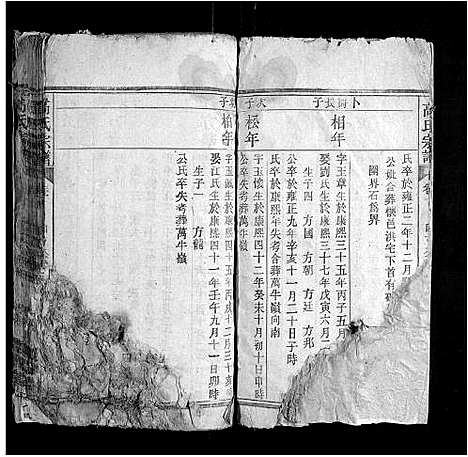 高氏宗譜
氏卒於雍正二年十二月
公妣合葬懷邑洪宅下首有碑
圖界石爲界
長子
相年
字玉章生於康熙三十五年丙子五月
娶劉氏生於康熙三十七年戊寅六月二
生子四 方國 方朝 方廷 方邦
公卒於雍正九年辛亥十一月二十日子時
氏卒於康熙年失考合葬萬牛嶺向南
次子
松年
字玉懷生於康熙四十二年癸未十月初十日申時
公卒失考葬萬牛嶺
子
柏年
字玉 生於康熙四十五年丙戌十二月三十亥
娶江氏生於康熙四十一年壬午九月十一日卯時
生子一 方觀
公氏卒失考葬萬牛嶺
氏宗譜